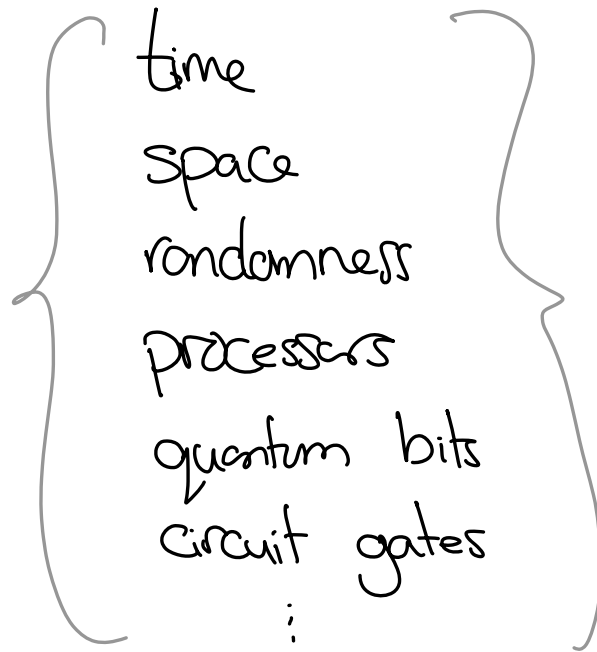 time
space
randomness
processors
quantum bits
circuit gates
⋮